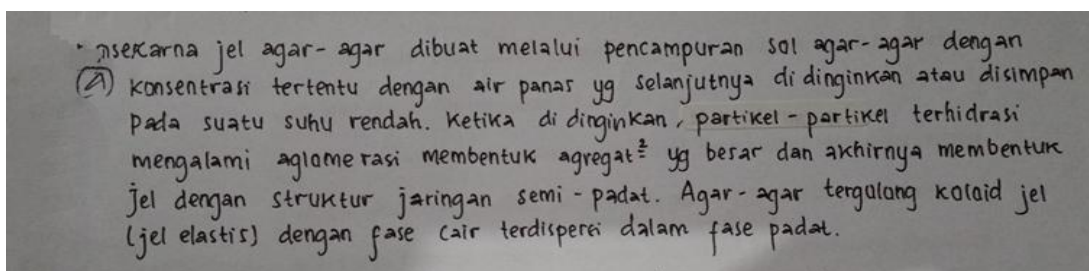 karna jel agar-agar dibuat melalui pencampuran sol agar-agar dengan
(A) konsentrasi tertentu dengan air panas yg selanjutnya di dinginkan atau disimpan
pada suatu suhu rendah. Ketika di dinginkan, partikel-partikel terhidrasi
mengalami aglomerasi membentuk agregat² yg besar dan akhirnya membentuk
jel dengan struktur jaringan semi-padat. Agar-agar tergolong koloid jel
(jel elastis) dengan fase cair terdispersi dalam fase padat.